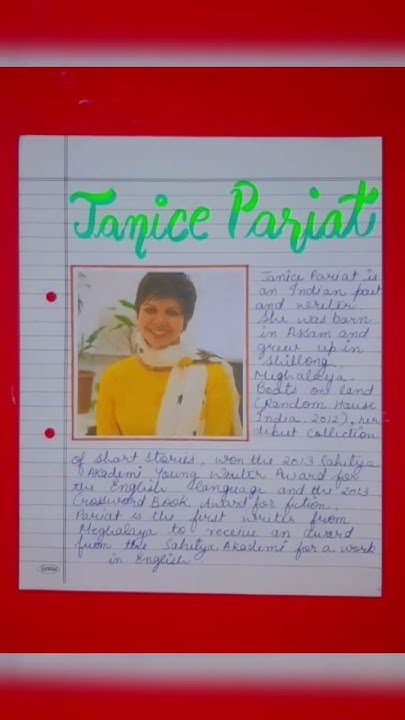 Janice Pariat
Janice Pariat is
an Indian poet
and writer.
She was born
in Assam and
grew up in
Shillong,
Meghalaya.
Boats on land
(Random House
India 2012), her
debut collection
of short stories, won the 2013 Sahitya
Akademi Young Writer Award for
the English language and the 2013
Crossword Book Award for fiction.
Pariat is the first writer from
Meghalaya to receive an award
from the Sahitya Akademi for a work
in English